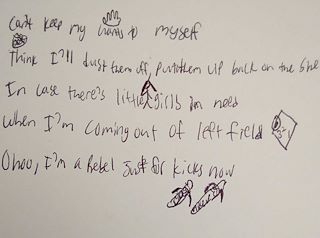 Can't keep my hands to myself
Think I'll dust them off, put them up back on the she
In case there's little girls in need
When I'm coming out of left field
Ohoo, I'm a Rebel just for kicks now